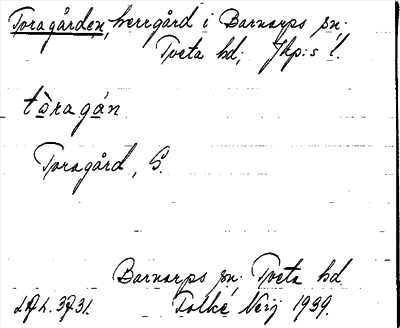 Toragården, herrgård i Barnarps sn.
Tveta hd, Jkp:s l.
tòragán
Toragård, S.
Barnarps sn. Tveta hd.
LAL. 3731. Folke Neij 1939.